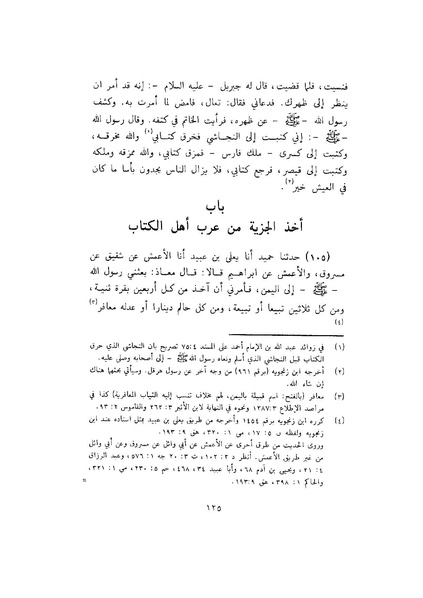 فنسيت، فلما قضيت، قال له جبريل - عليه السلام - : إنه قد أمر ان
ينظر إلى ظهرك. فدعاني فقال: تعال، فامض لما أمرت به. وكشف
رسول الله - ﷺ - عن ظهره، فرأيت الخاتم في كتفه. وقال رسول الله
- ﷺ - : إني كتبت إلى النجاشي فخرق كتابي(١) والله مخرقه،
وكتبت إلى كسرى - ملك فارس - فمزق كتابي، والله ممزقه وملكه
وكتبت إلى قيصر، فرجع كتابي، فلا يزال الناس يجدون بأسا ما كان
في العيش خير(٢).
باب
أخذ الجزية من عرب أهل الكتاب
(١٠٥) حدثنا حميد أنا يعلى بن عبيد أنا الأعمش عن شقيق عن
مسروق، والأعمش عن ابراهيم قالا: قال معاذ: بعثني رسول الله
- ﷺ - إلى اليمن، فأمرني أن آخذ من كل أربعين بقرة ثنية،
ومن كل ثلاثين تبيعا أو تبيعة، ومن كل حالم دينارا أو عدله معافر(٣)
(٤)
(١) في زوائد عبد الله بن الإمام أحمد على المسند ٤: ٧٥ تصريح بان النجاشي الذي خرق
الكتاب قبل النجاشي الذي أسلم ونعاه رسول الله ﷺ - إلى أصحابه وصلى عليه.
(٢) أخرجه ابن زنجويه (برقم ٩٦١) من وجه آخر عن رسول هرقل. وسيأتي بحثها هناك
إن شاء الله.
(٣) معافر (بالفتح: اسم قبيلة باليمن، لهم مخلاف تنسب إليه الثياب المعافرية) كذا في
مراصد الإطلاع ٣: ١٢٨٧ ونحوه في النهاية لابن الأثير ٣: ٢٦٢ والقاموس ٢: ٩٣.
(٤) كرره ابن زنجويه برقم ١٤٥٤ وأخرجه من طريق يعلى بن عبيد بمثل اسناده عند ابن
زنجويه ولفظه ن ٥: ١٧، مي ١: ٣٢٠، هق ٩: ١٩٣.
وروى الحديث من طرق أخرى عن الأعمش عن أبي وائل عن مسروق وعن أبي وائل
من غير طريق الأعمش. أنظر د ٢: ١٠٢، ت ٣: ٢٠ جه ١: ٥٧٦، وعبد الرزاق
٤: ٢١، ويحيى بن آدم ٦٨، وأبا عبيد ٣٤، ٤٦٨، حم ٥: ٢٣٠، مي ١: ٣٢١،
والحاكم ١: ٣٩٨، هق ٩: ١٩٣.
١٢٥